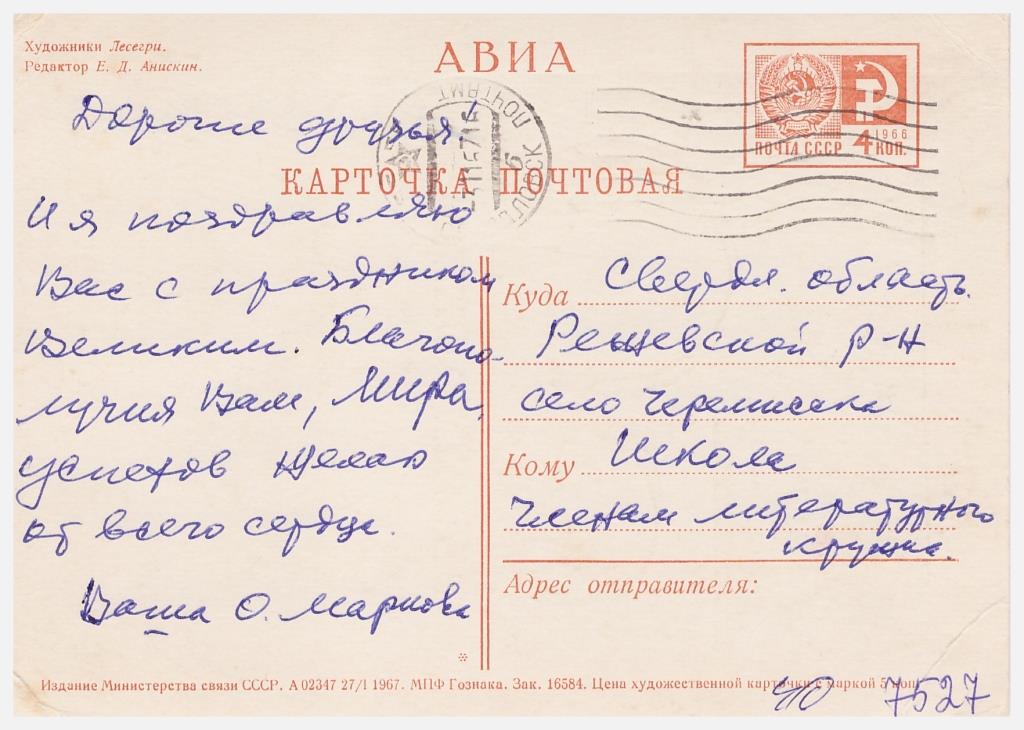 Художники Лесегри.
Редактор Е. Д. Анискин.
АВИА
ПОЧТА СССР 4 КОП. 1966
КАРТОЧКА ПОЧТОВАЯ
ПОЧТАМТ
Дорогие друзья!
И я поздравляю
Вас с праздником
Великим. Благопо-
лучия Вам, Мира,
успехов желаю
от всего сердца.
Ваша О. Маркова
Куда Свердл. область.
Режевской р-н
село Черемисска
Кому Школа
Членам литературного
кружка.
Адрес отправителя:
*
Издание Министерства связи СССР. А 02347 27/I 1967. МПФ Гознака. Зак. 16584. Цена художественной карточки с маркой 5 коп.
7527